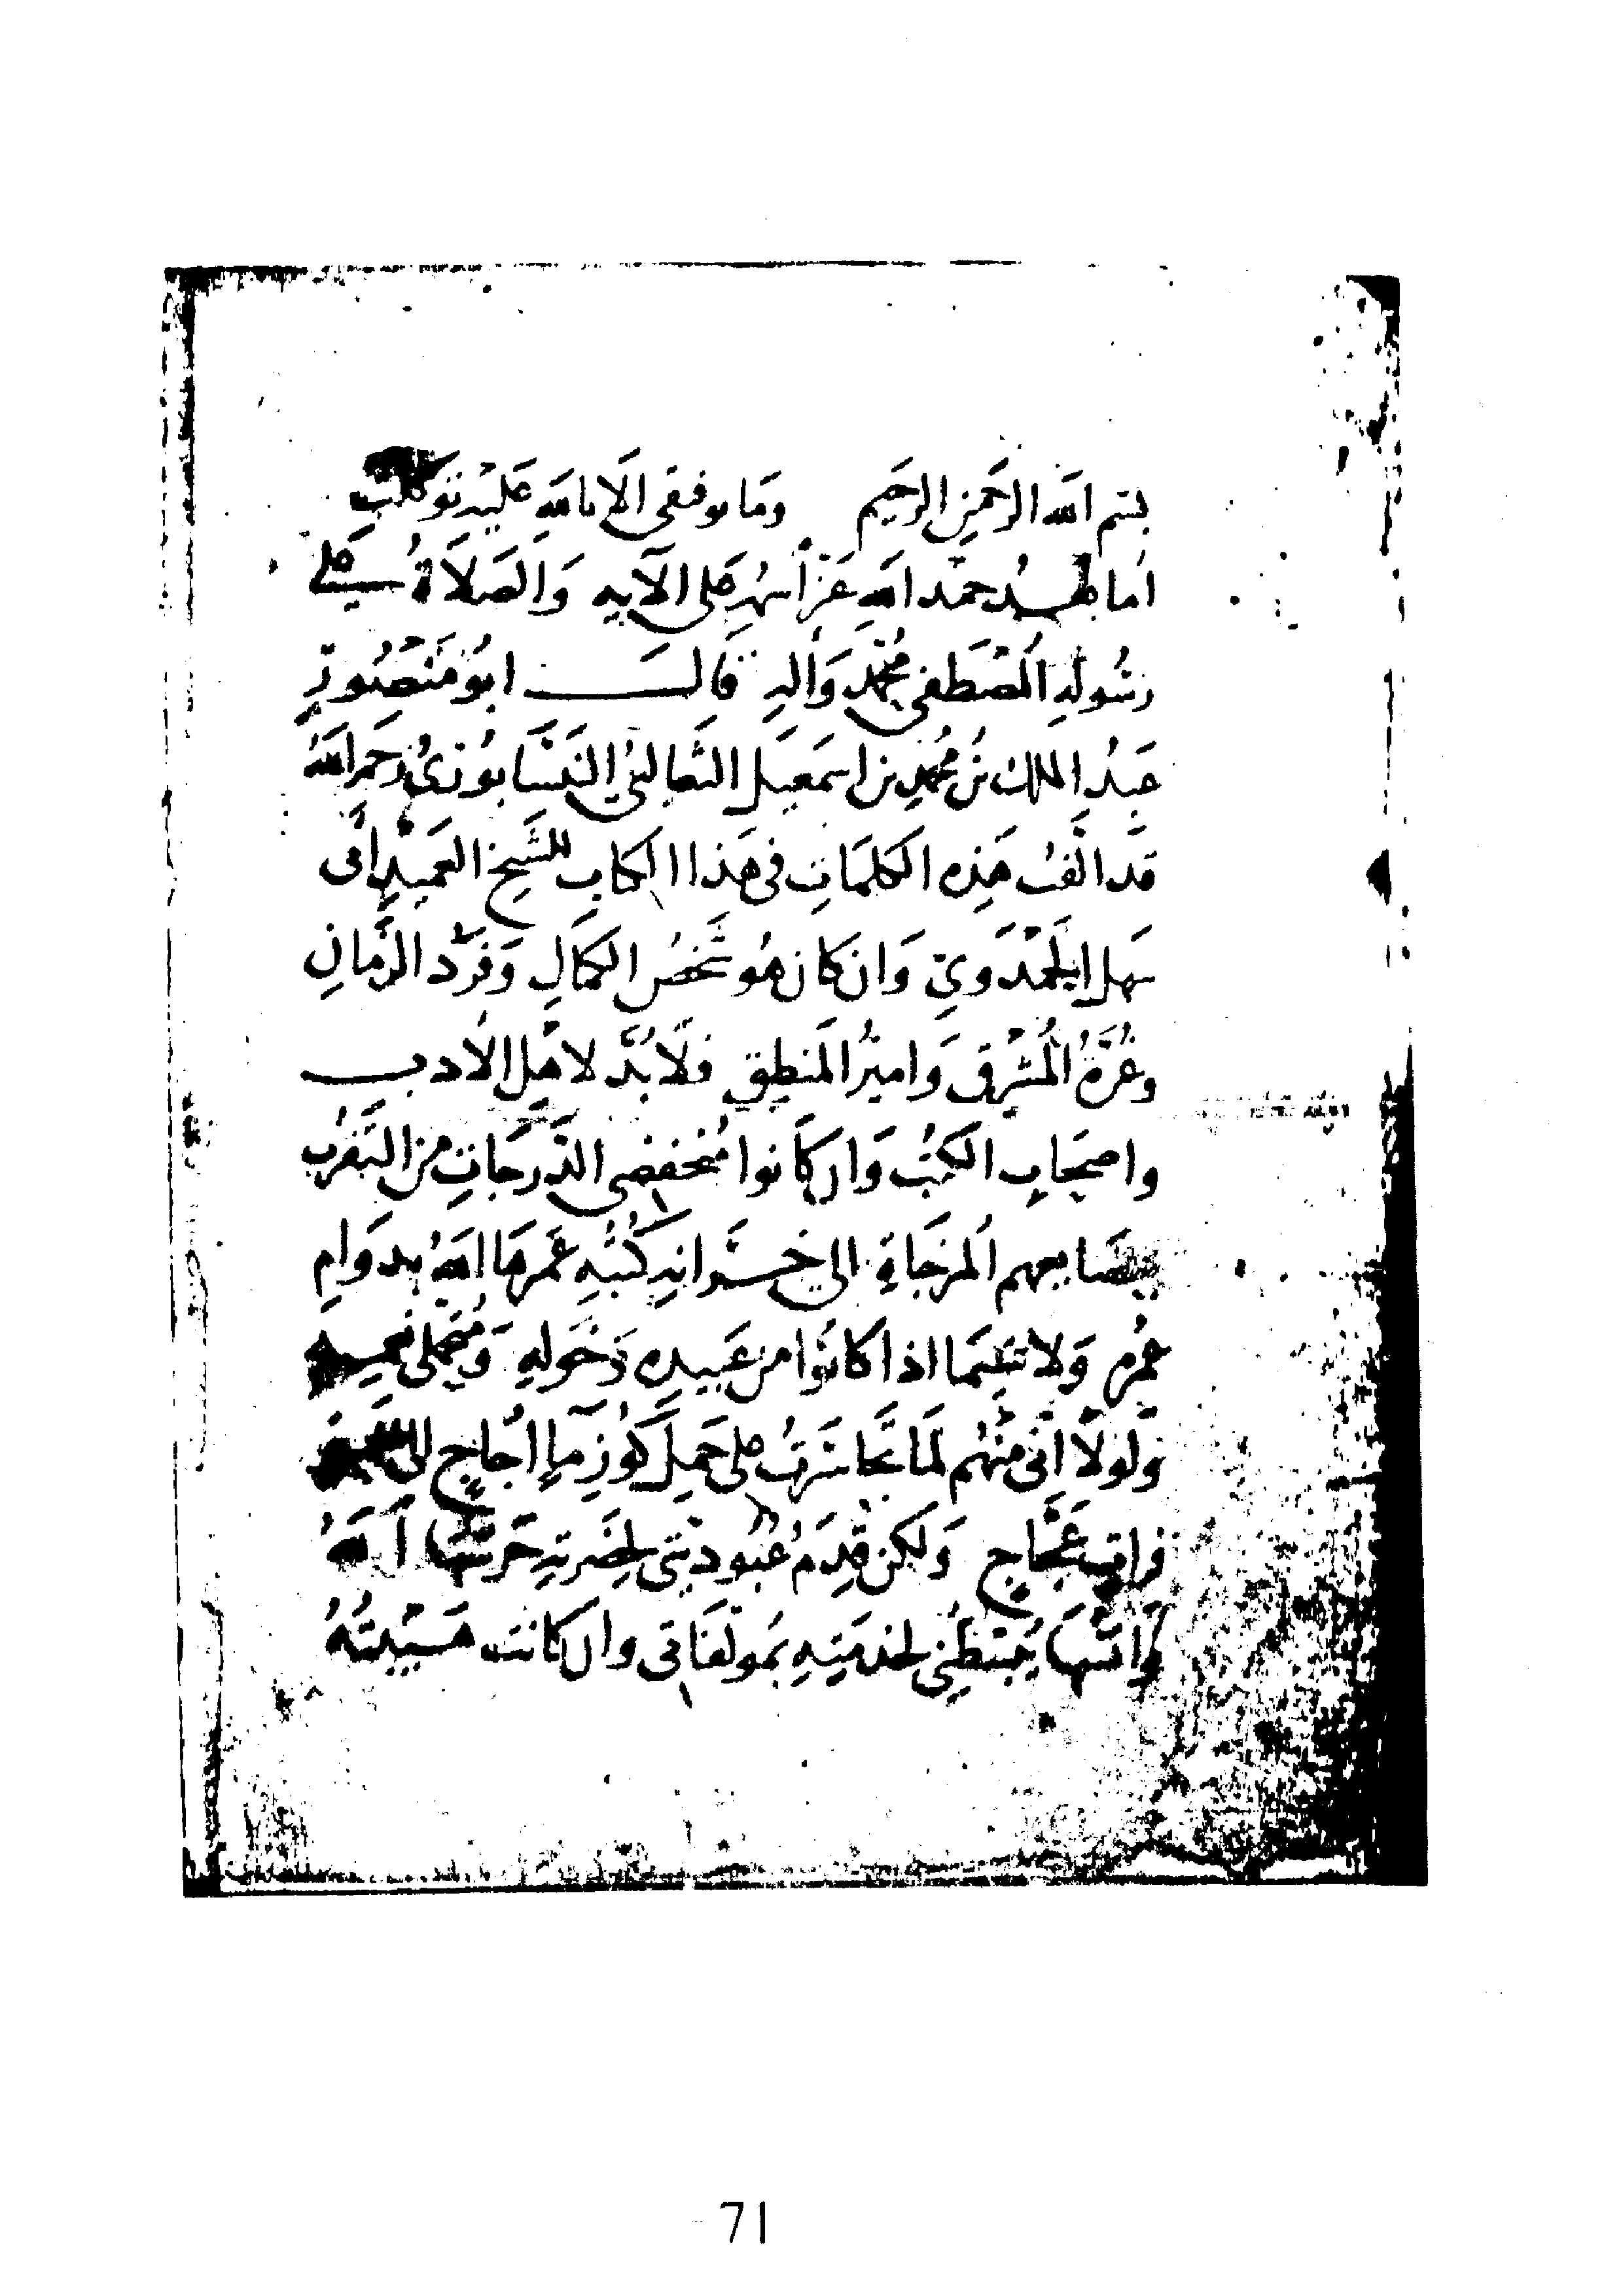 بسم الله الرحمن الرحيم وما توفيقى الا بالله عليه توكلت
اما بعد حمد الله عز اسمه على الآيه والصلاة على
رسوله المصطفى محمد واله قال ابو منصور
عبد الملك بن محمد بن اسمعيل الثعالبي النيسابوري رحمه الله
قد الفت هذه الكلمات في هذا الكتاب للشيخ العميد ابى
سهل الحمدوي وان كان هو شخص الكمال وفرد الزمان
وغرة المشرق وامير المنطق فلا بد لاهل الادب
واصحاب الكتب وان كانوا منخفضى الدرجات من التقرب
ببضايعهم المزجاة الى خزانة كتبه عمرها الله بدوام
عمره ولا سيما اذا كانوا من عبيده وخوله ومتحملى
ولولا انى منهم لما تجاسرت على حمل كوز ماء اجاج الى
فرات عجاج ولكن قدم عبوديتى لحضرته حرسها الله
وانسها يبسطني لخدمته بمؤلفاتى وان كانت هيبته
71